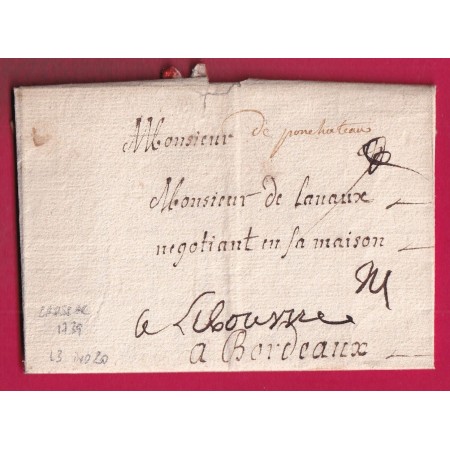 Monsieur de ponchateau
Monsieur de Lavaux
negotiant en sa maison
a Libourne
a Bordeaux
1739